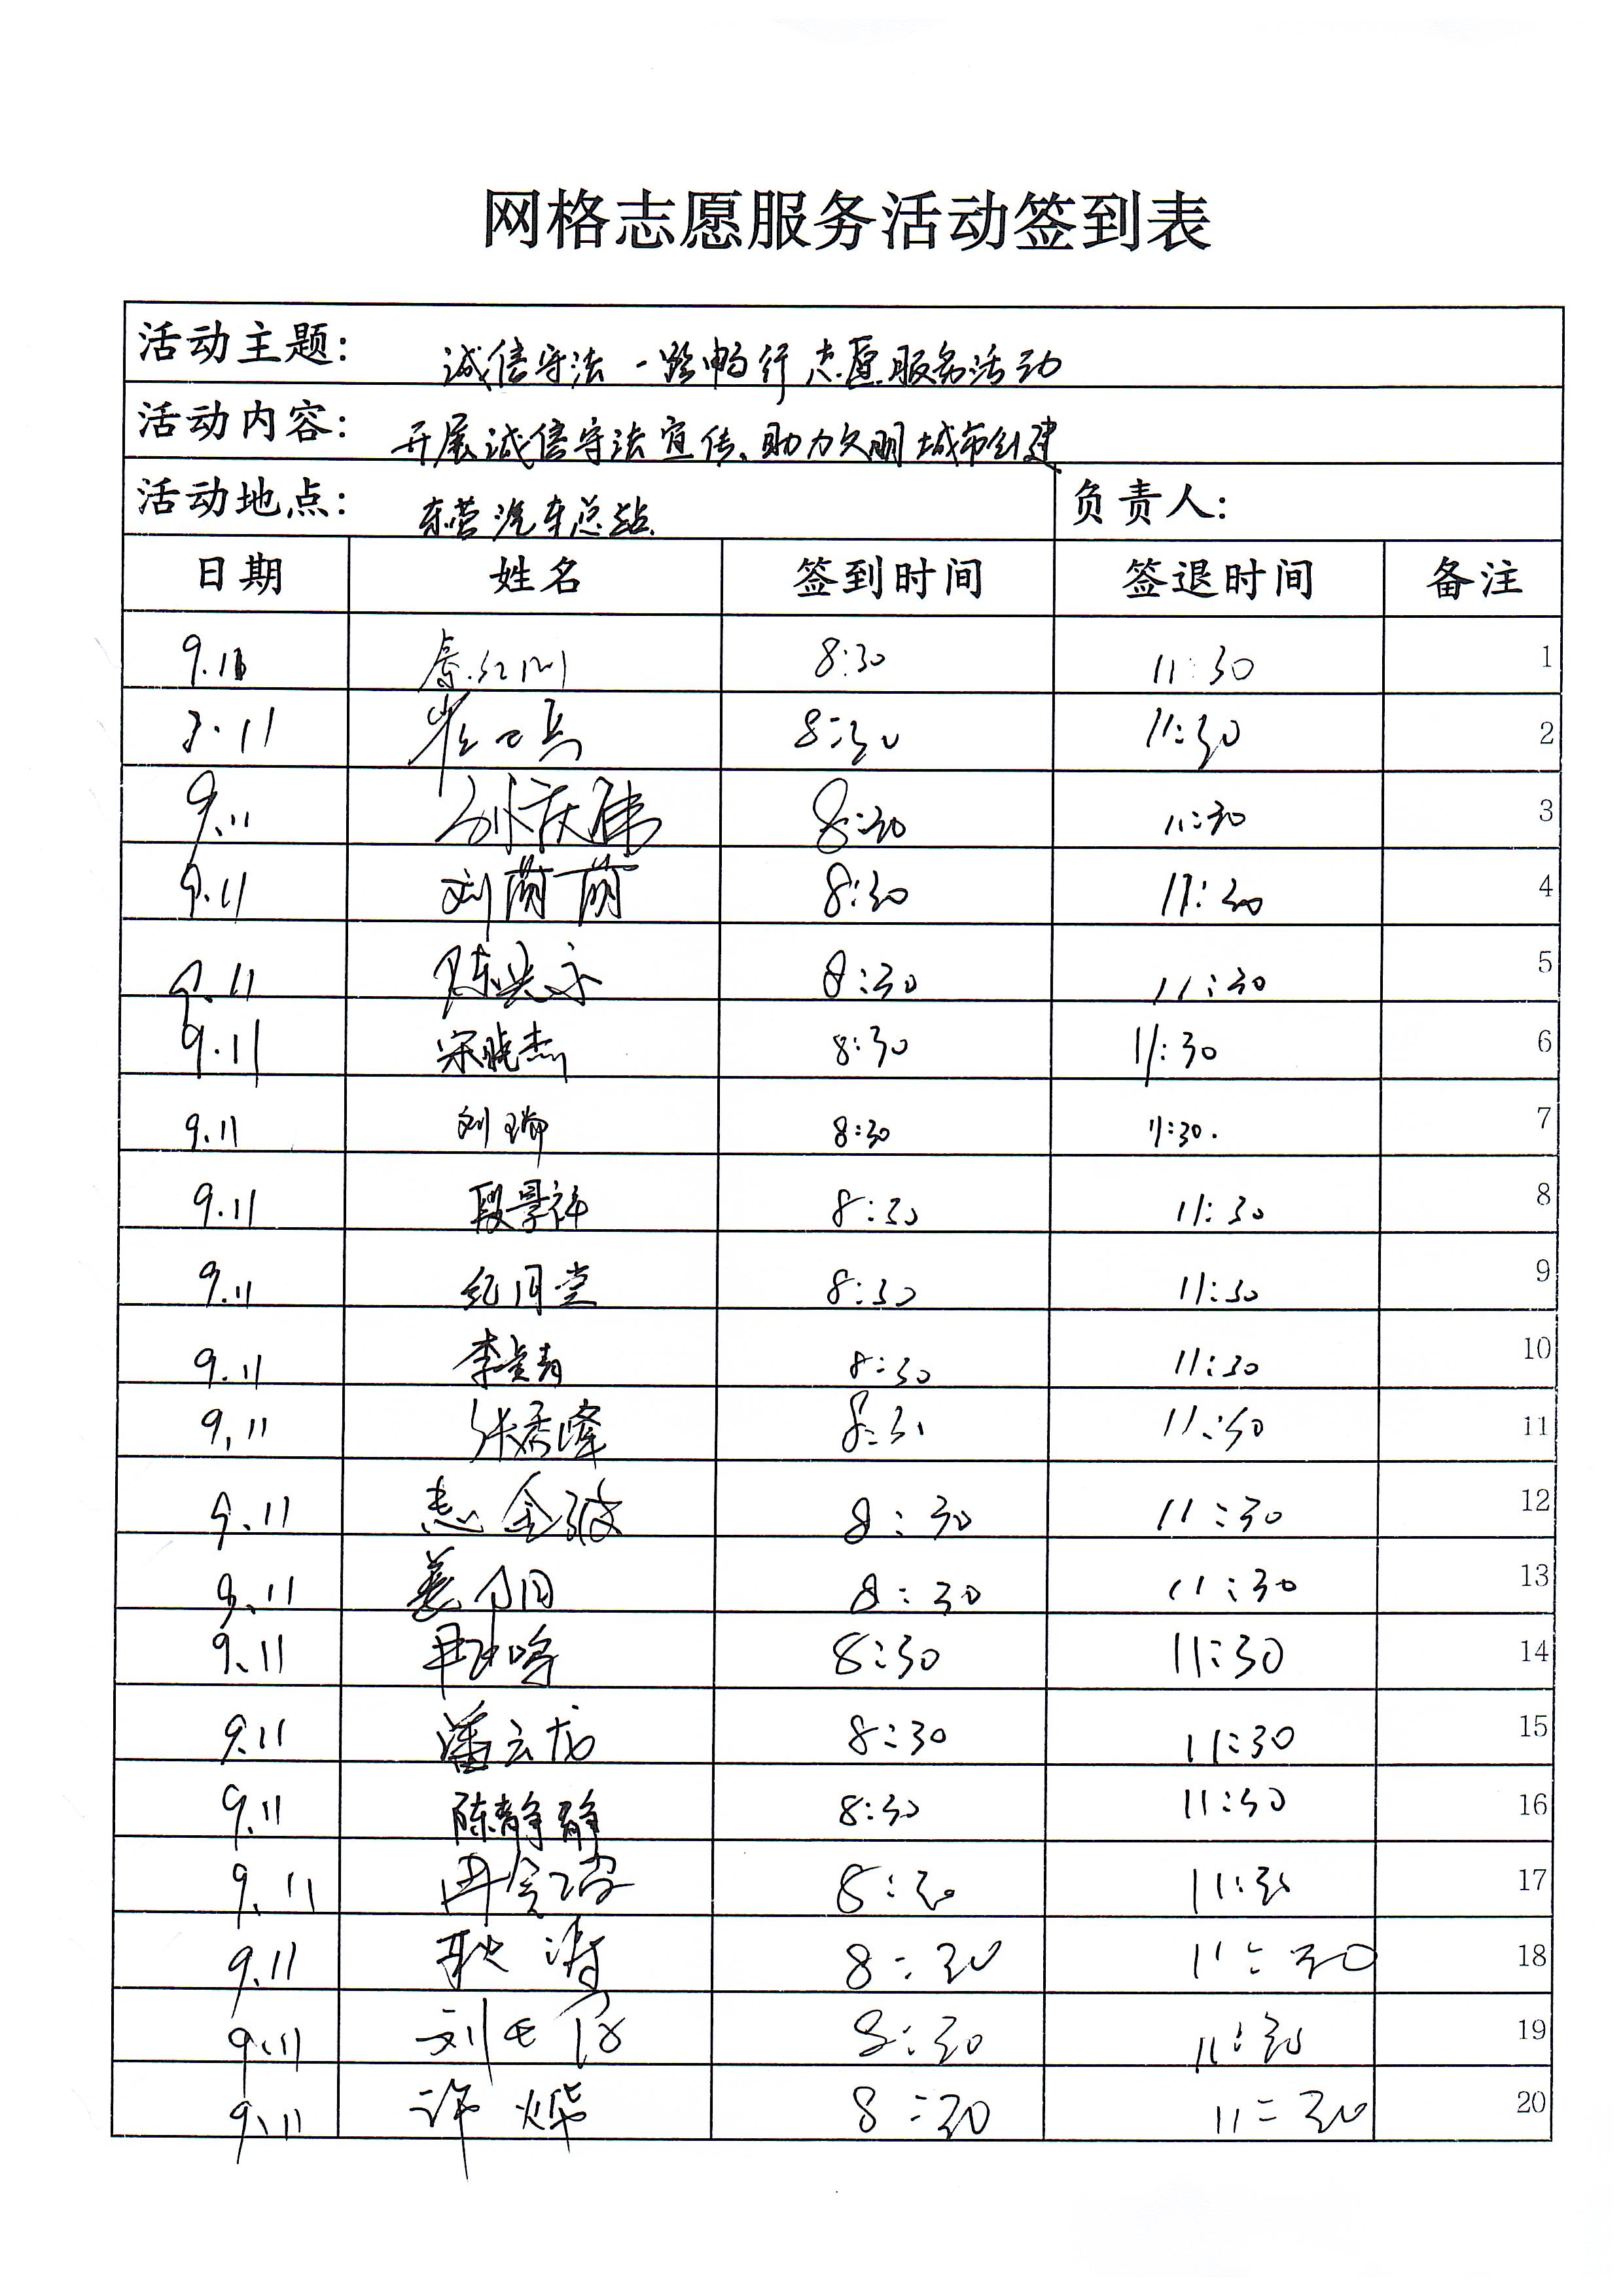 网格志愿服务活动签到表
活动主题： 诚信守法 一路畅行 志愿服务活动
活动内容： 开展诚信守法宣传、助力文明城市创建
活动地点： 东营汽车总站 负责人：
日期 姓名 签到时间 签退时间 备注
9.11 8:30 11:30 1
9.11 崔 兵 8:30 11:30 2
9.11 孙庆伟 8:30 11:30 3
9.11 刘萌萌 8:30 11:30 4
9.11 陈兴永 8:30 11:30 5
9.11 宋晓杰 8:30 11:30 6
9.11 刘瑞 8:30 11:30. 7
9.11 段景祥 8:30 11:30 8
9.11 纪月堂 8:30 11:30 9
9.11 李 青 8:30 11:30 10
9.11 张秀峰 8:30 11:30 11
9.11 金 8:30 11:30 12
9.11 姜 8:30 11:30 13
9.11 8:30 11:30 14
9.11 潘云龙 8:30 11:30 15
9.11 陈静静 8:30 11:30 16
9.11 8:30 11:30 17
9.11 耿涛 8:30 11:30 18
9.11 刘 8:30 11:30 19
9.11 许烨 8:30 11:30 20